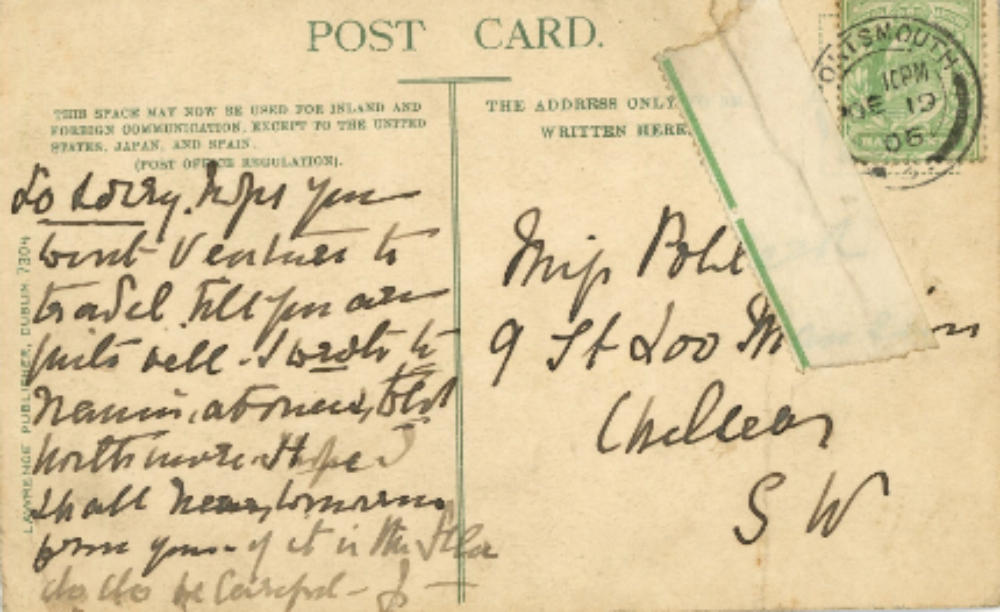 POST CARD.
THIS SPACE MAY NOW BE USED FOR INLAND AND
FOREIGN COMMUNICATION, EXCEPT TO THE UNITED
STATES, JAPAN, AND SPAIN.
(POST OFFICE REGULATION).
THE ADDRESS ONLY
WRITTEN HERE.
PORTSMOUTH
10PM
DE 19
05
So sorry. Hope you
wont Venture to
travel till you are
quite well. I wrote to
at once, told
Hope I
shall hear tomorrow
from you - if it is the
do do be careful -
Miss
9 St Loo M
Chelsea
S W
LAWRENCE PUBLISHER, DUBLIN 7304